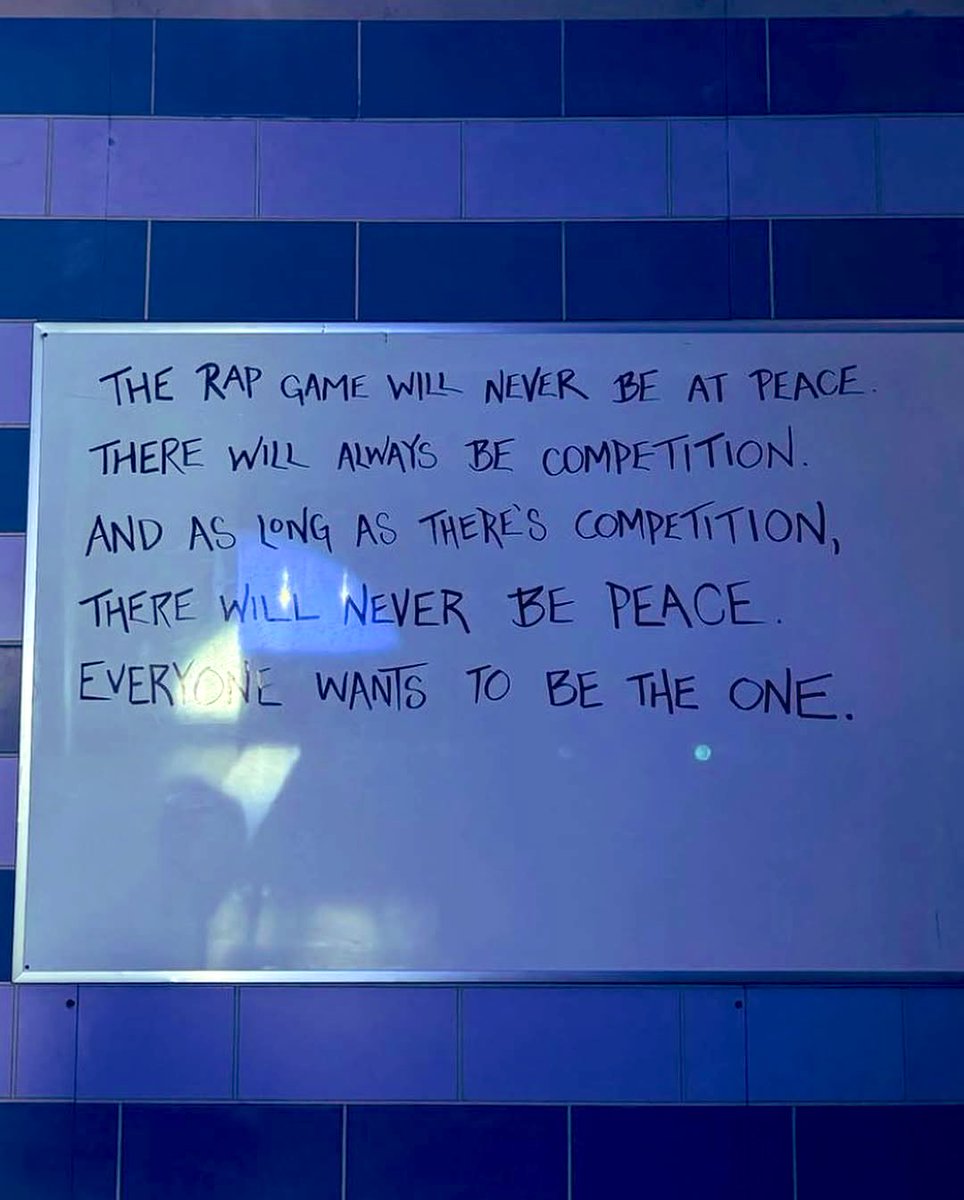 THE RAP GAME WILL NEVER BE AT PEACE.
THERE WILL ALWAYS BE COMPETITION.
AND AS LONG AS THERE'S COMPETITION,
THERE WILL NEVER BE PEACE.
EVERYONE WANTS TO BE THE ONE.